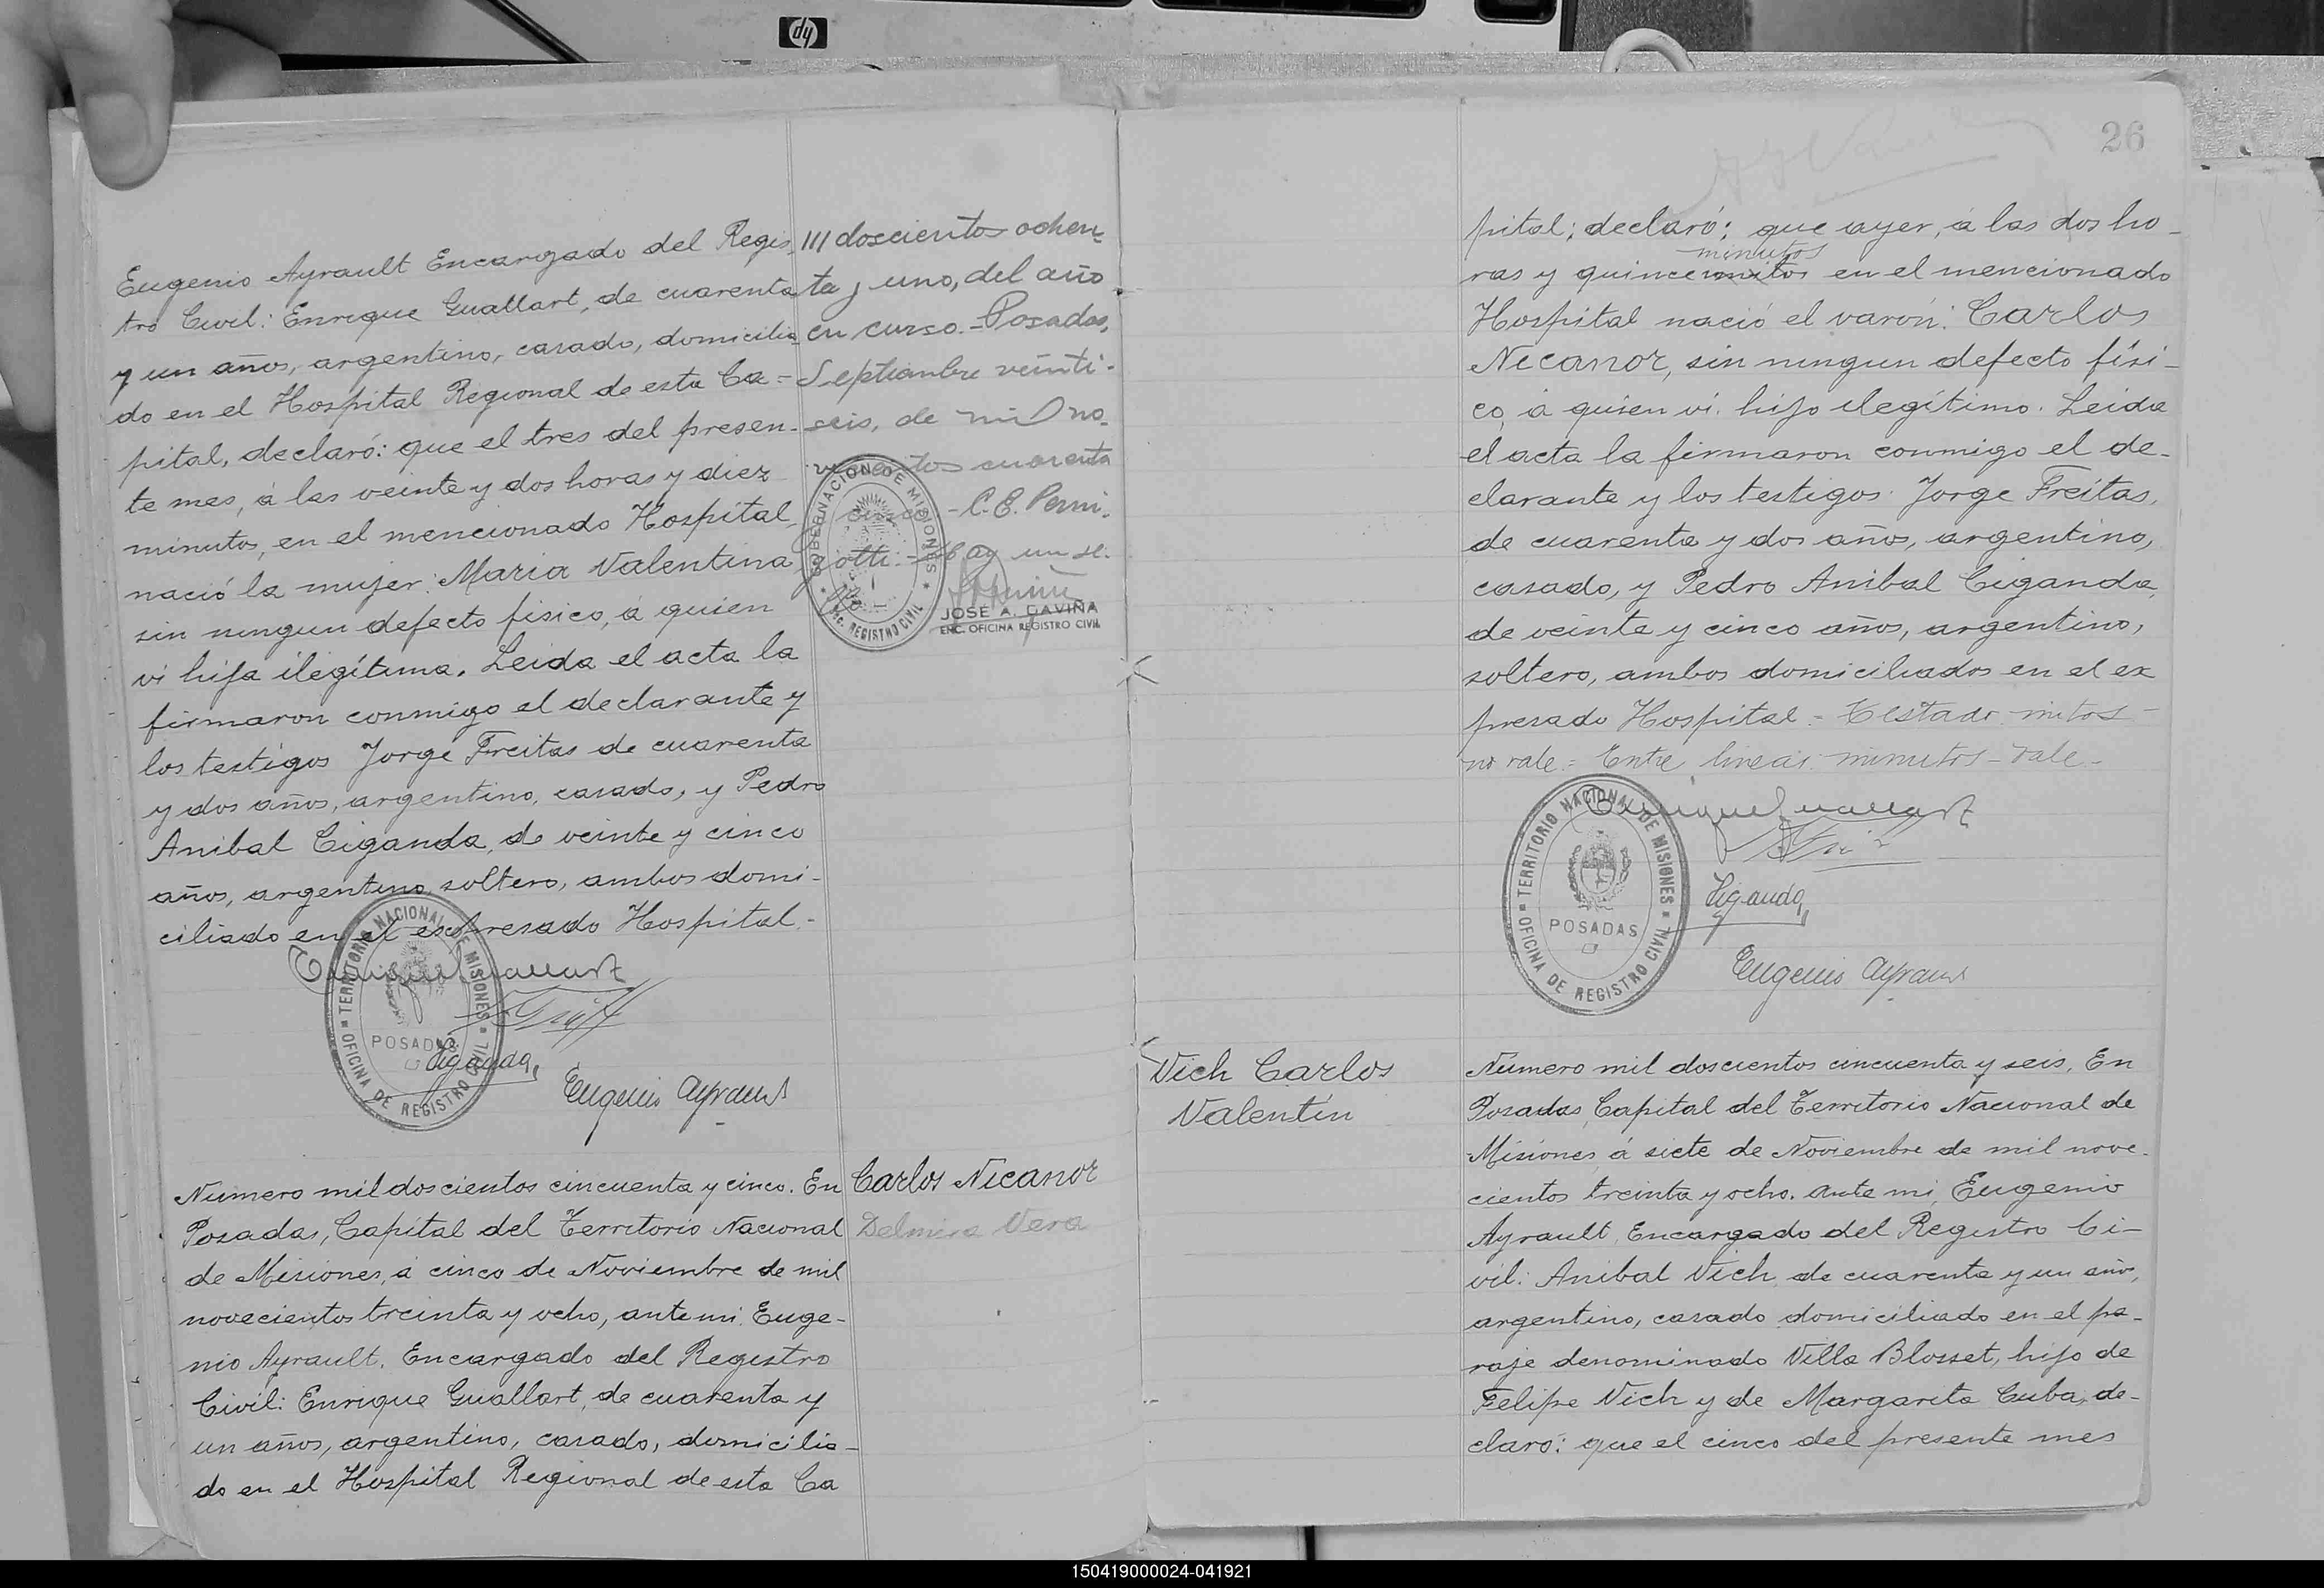 hp
Eugenio Ayrault Encargado del Regis-
tro Civil: Enrique Guallart, de cuarenta
y un años, argentino, casado, domicilia
do en el Hospital Regional de esta Ca=
pital, declaró: que el tres del presen-
te mes, á las veinte y dos horas y diez
minutos, en el mencionado Hospital,
nació la mujer: Maria Valentina
sin ningun defecto fisico, á quien
vi hija ilegítima. Leida el acta la
firmaron conmigo el declarante y
los testigos Jorge Freitas de cuarenta
y dos años, argentino, casado, y Pedro
Anibal Ciganda, de veinte y cinco
años, argentino, soltero, ambos domi-
ciliado en el expresado Hospital.-
Enrique Guallart
TERRITORIO NACIONAL DE MISIONES
POSADAS
OFICINA DE REGISTRO CIVIL
Ciganda
Eugenio Ayrault
/// doscientos ochen-
ta y uno, del año
en curso.- Posadas,
Septiembre veinti-
seis, de mil no-
vecientos cuarenta
cinco - C. E.
Hay un se-
llo
GOBERNACION DE MISIONES
ENC. REGISTRO CIVIL
JOSÉ A. GAVIÑA
ENC. OFICINA REGISTRO CIVIL
Numero mil doscientos cincuenta y cinco. En
Posadas, Capital del Territorio Nacional
de Misiones, á cinco de Noviembre de mil
novecientos treinta y ocho, ante mi Euge-
nio Ayrault. Encargado del Registro
Civil: Enrique Guallart, de cuarenta y
un años, argentino, casado, domicilia-
do en el Hospital Regional de esta Ca
Carlos Nicanor
Delmira Vera
26
pital; declaró: que ayer, á las dos ho-
minutos
ras y quince mitos en el mencionado
Hospital nació el varón: Carlos
Necanor, sin ningun defecto fisi-
co, á quien vi. hijo ilegítimo. Leida
el acta la firmaron conmigo el de-
clarante y los testigos: Jorge Freitas,
de cuarenta y dos años, argentino,
casado, y Pedro Anibal Ciganda,
de veinte y cinco años, argentino,
soltero, ambos domiciliados en el ex
presado Hospital.= Testado mitos-
no vale.= Entre lineas: minutos- vale-
Enrique Guallart
TERRITORIO NACIONAL DE MISIONES
POSADAS
OFICINA DE REGISTRO CIVIL
Ciganda
Eugenio Ayrault
Vich Carlos
Valentin
Numero mil doscientos cincuenta y seis. En
Posadas, Capital del Territorio Nacional de
Misiones, á siete de Noviembre de mil nove-
cientos treinta y ocho. ante mi, Eugenio
Ayrault, Encargado del Registro Ci-
vil: Anibal Vich, de cuarenta y un años,
argentino, casado domiciliado en el pa-
raje denominado Villa Blosset, hijo de
Felipe Vich y de Margarita Cuba, de-
claró: que el cinco del presente mes
150419000024-041921